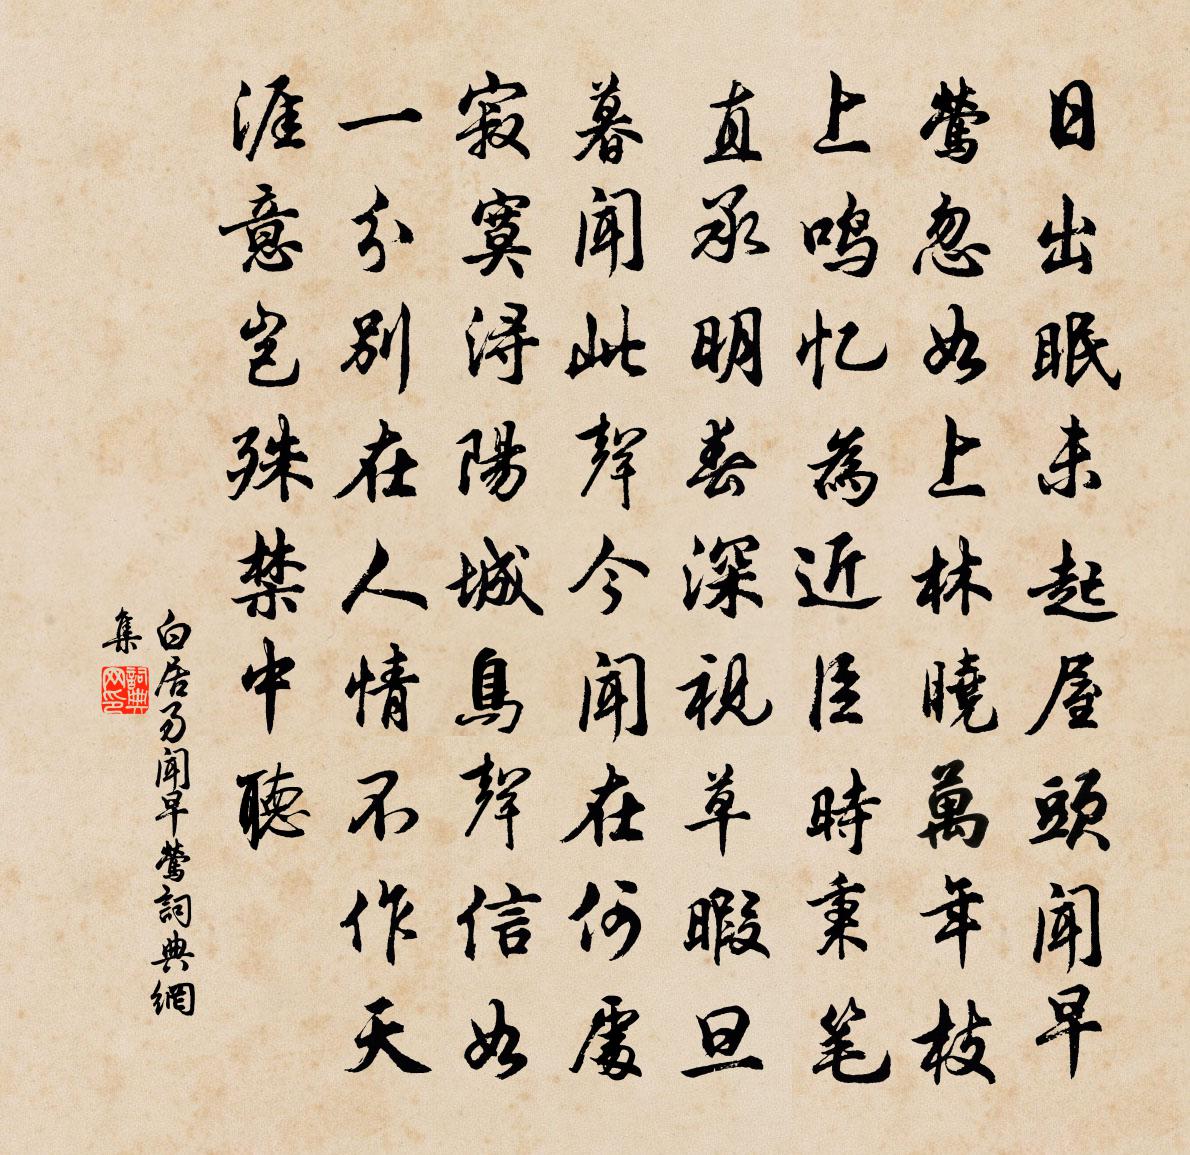 日出眠未起屋頭聞早
鶯忽如上林曉萬年枝
上鸣忆為近臣時秉笔
直承明春深視草暇旦
暮聞此聲今聞在何處
寂寞浔陽城鳥聲信如
一分別在人情不作天
涯意豈殊禁中聽
白居易聞早鶯詞典網
集
詞典
网印